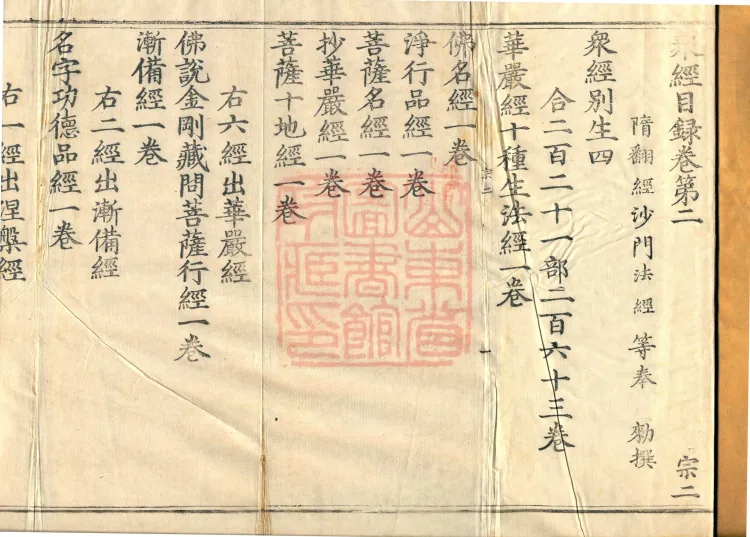 眾經目録卷第二 宗二
隋翻經沙門法經等奉 勑撰
眾經別生四
合二百二十一部二百六十三卷
華嚴經十種生法經一卷
宗二 一
佛名經一卷
淨行品經一卷
菩薩名經一卷
抄華嚴經一卷
菩薩十地經一卷
右六經出華嚴經
佛說金剛藏問菩薩行經一卷
漸備經一卷
右二經出漸備經
名字功德品經一卷
右一經出涅槃經
山東省圖書館